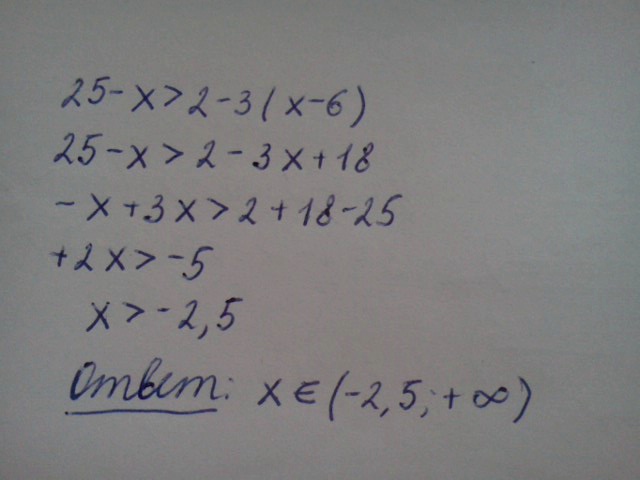 25-x>2-3(x-6)
25-x>2-3x+18
-x+3x>2+18-25
+2x>-5
x>-2,5
Ответ: x∈(-2,5;+∞)